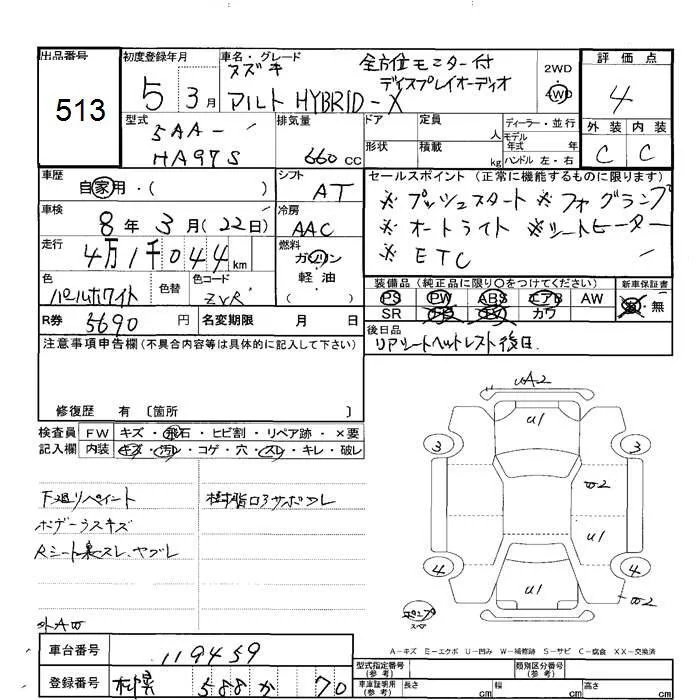 出品番号 513
初度登録年月 5 3月
車名・グレード スズキ アルト HYBRID-X
全方位モニター付
ディスプレイオーディオ
2WD
4WD
評価点 4
外装 内装
C C
型式 5AA-
HA97S
排気量 660 cc
ドア 定員 人
形状 積載 kg
ディーラー・並行
モデル年式 年式
ハンドル 左・右
車歴 自家用・( )
シフト AT
車検 8年3月(22日)
冷房 AAC
走行 4万1千044km
燃料 ガソリン
軽油
( )
色 パールホワイト 色替 色コード ZVR
R券 5690円 名変期限 月 日
セールスポイント (正常に機能するものに限ります)
※プッシュスタート ※フォグランプ
※オートライト ※シートヒーター
※ETC
装備品 (純正品に限り○をつけてください) 新車保証書
PS PW ABS エアB AW 有・無
SR カワ
後日品
リアシートヘットレスト後日
注意事項申告欄 (不具合内容等は具体的に記入して下さい)
修復歴 有〔箇所 〕
検査員 FW キズ・飛石・ヒビ割・リペア跡・×要
記入欄 内装 キズ・汚レ・コゲ・穴・スレ・キレ・破レ
下廻リペイント
樹脂口アサボスレ
ボデーうスキズ
Rシート裏スレ、ヤブレ
外AW
UA2
U1
3 3
W2
U1
4 4
U1
W2
スペア
A-キズ E-エクボ U-凹み W-補修跡 S-サビ C-腐食 XX-交換済
車台番号 119459
登録番号 札幌 588 か 70
型式指定番号 (参考) 類別区分番号 (参考)
車庫証明用 (参考) 長さ cm 幅 cm 高さ cm